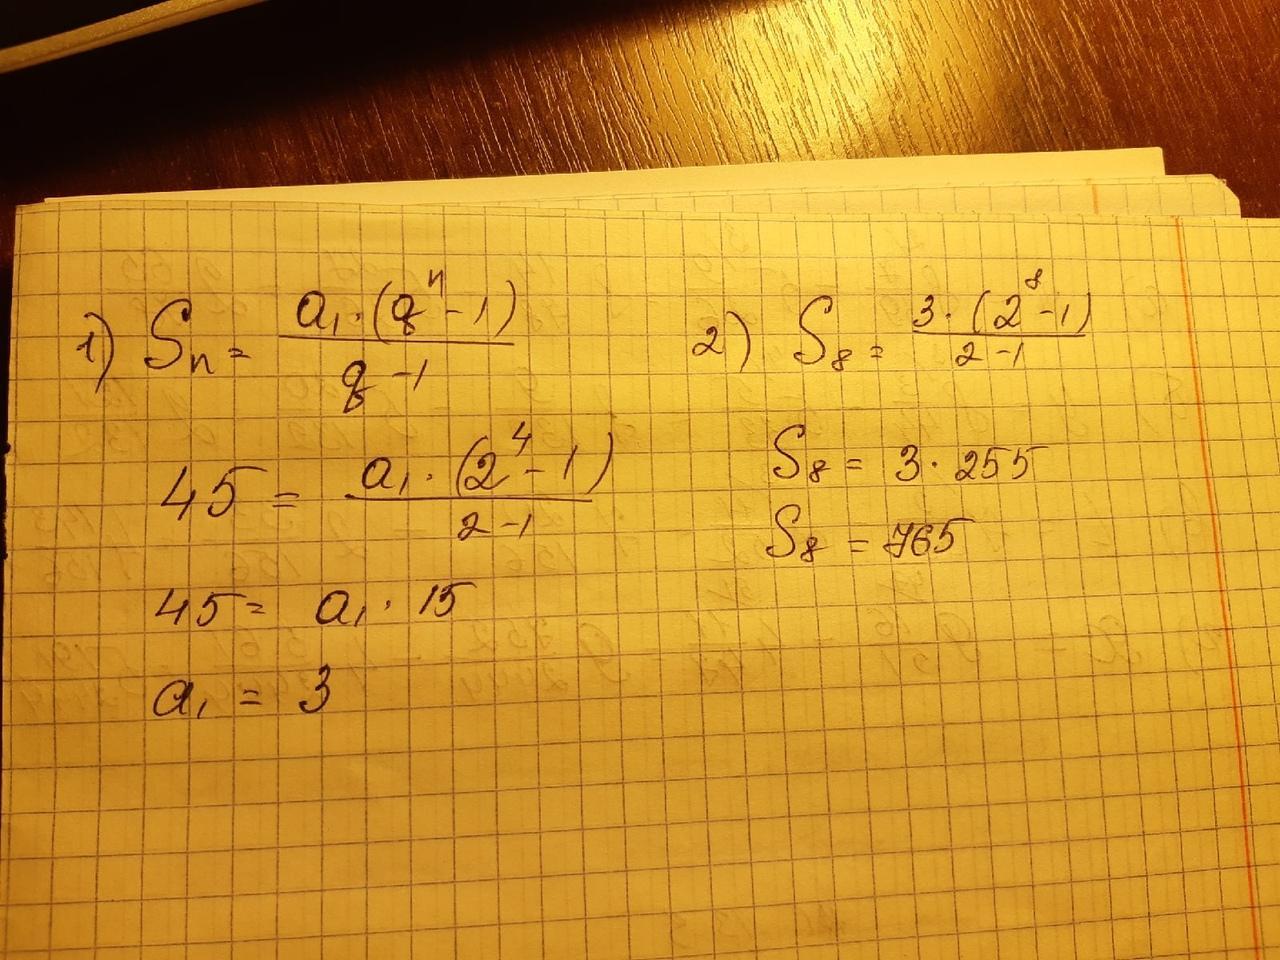 1) Sₙ = a₁·(qⁿ-1) / q-1
45 = a₁·(2⁴-1) / 2-1
45 = a₁·15
a₁ = 3
2) S₈ = 3·(2⁸-1) / 2-1
S₈ = 3·255
S₈ = 765